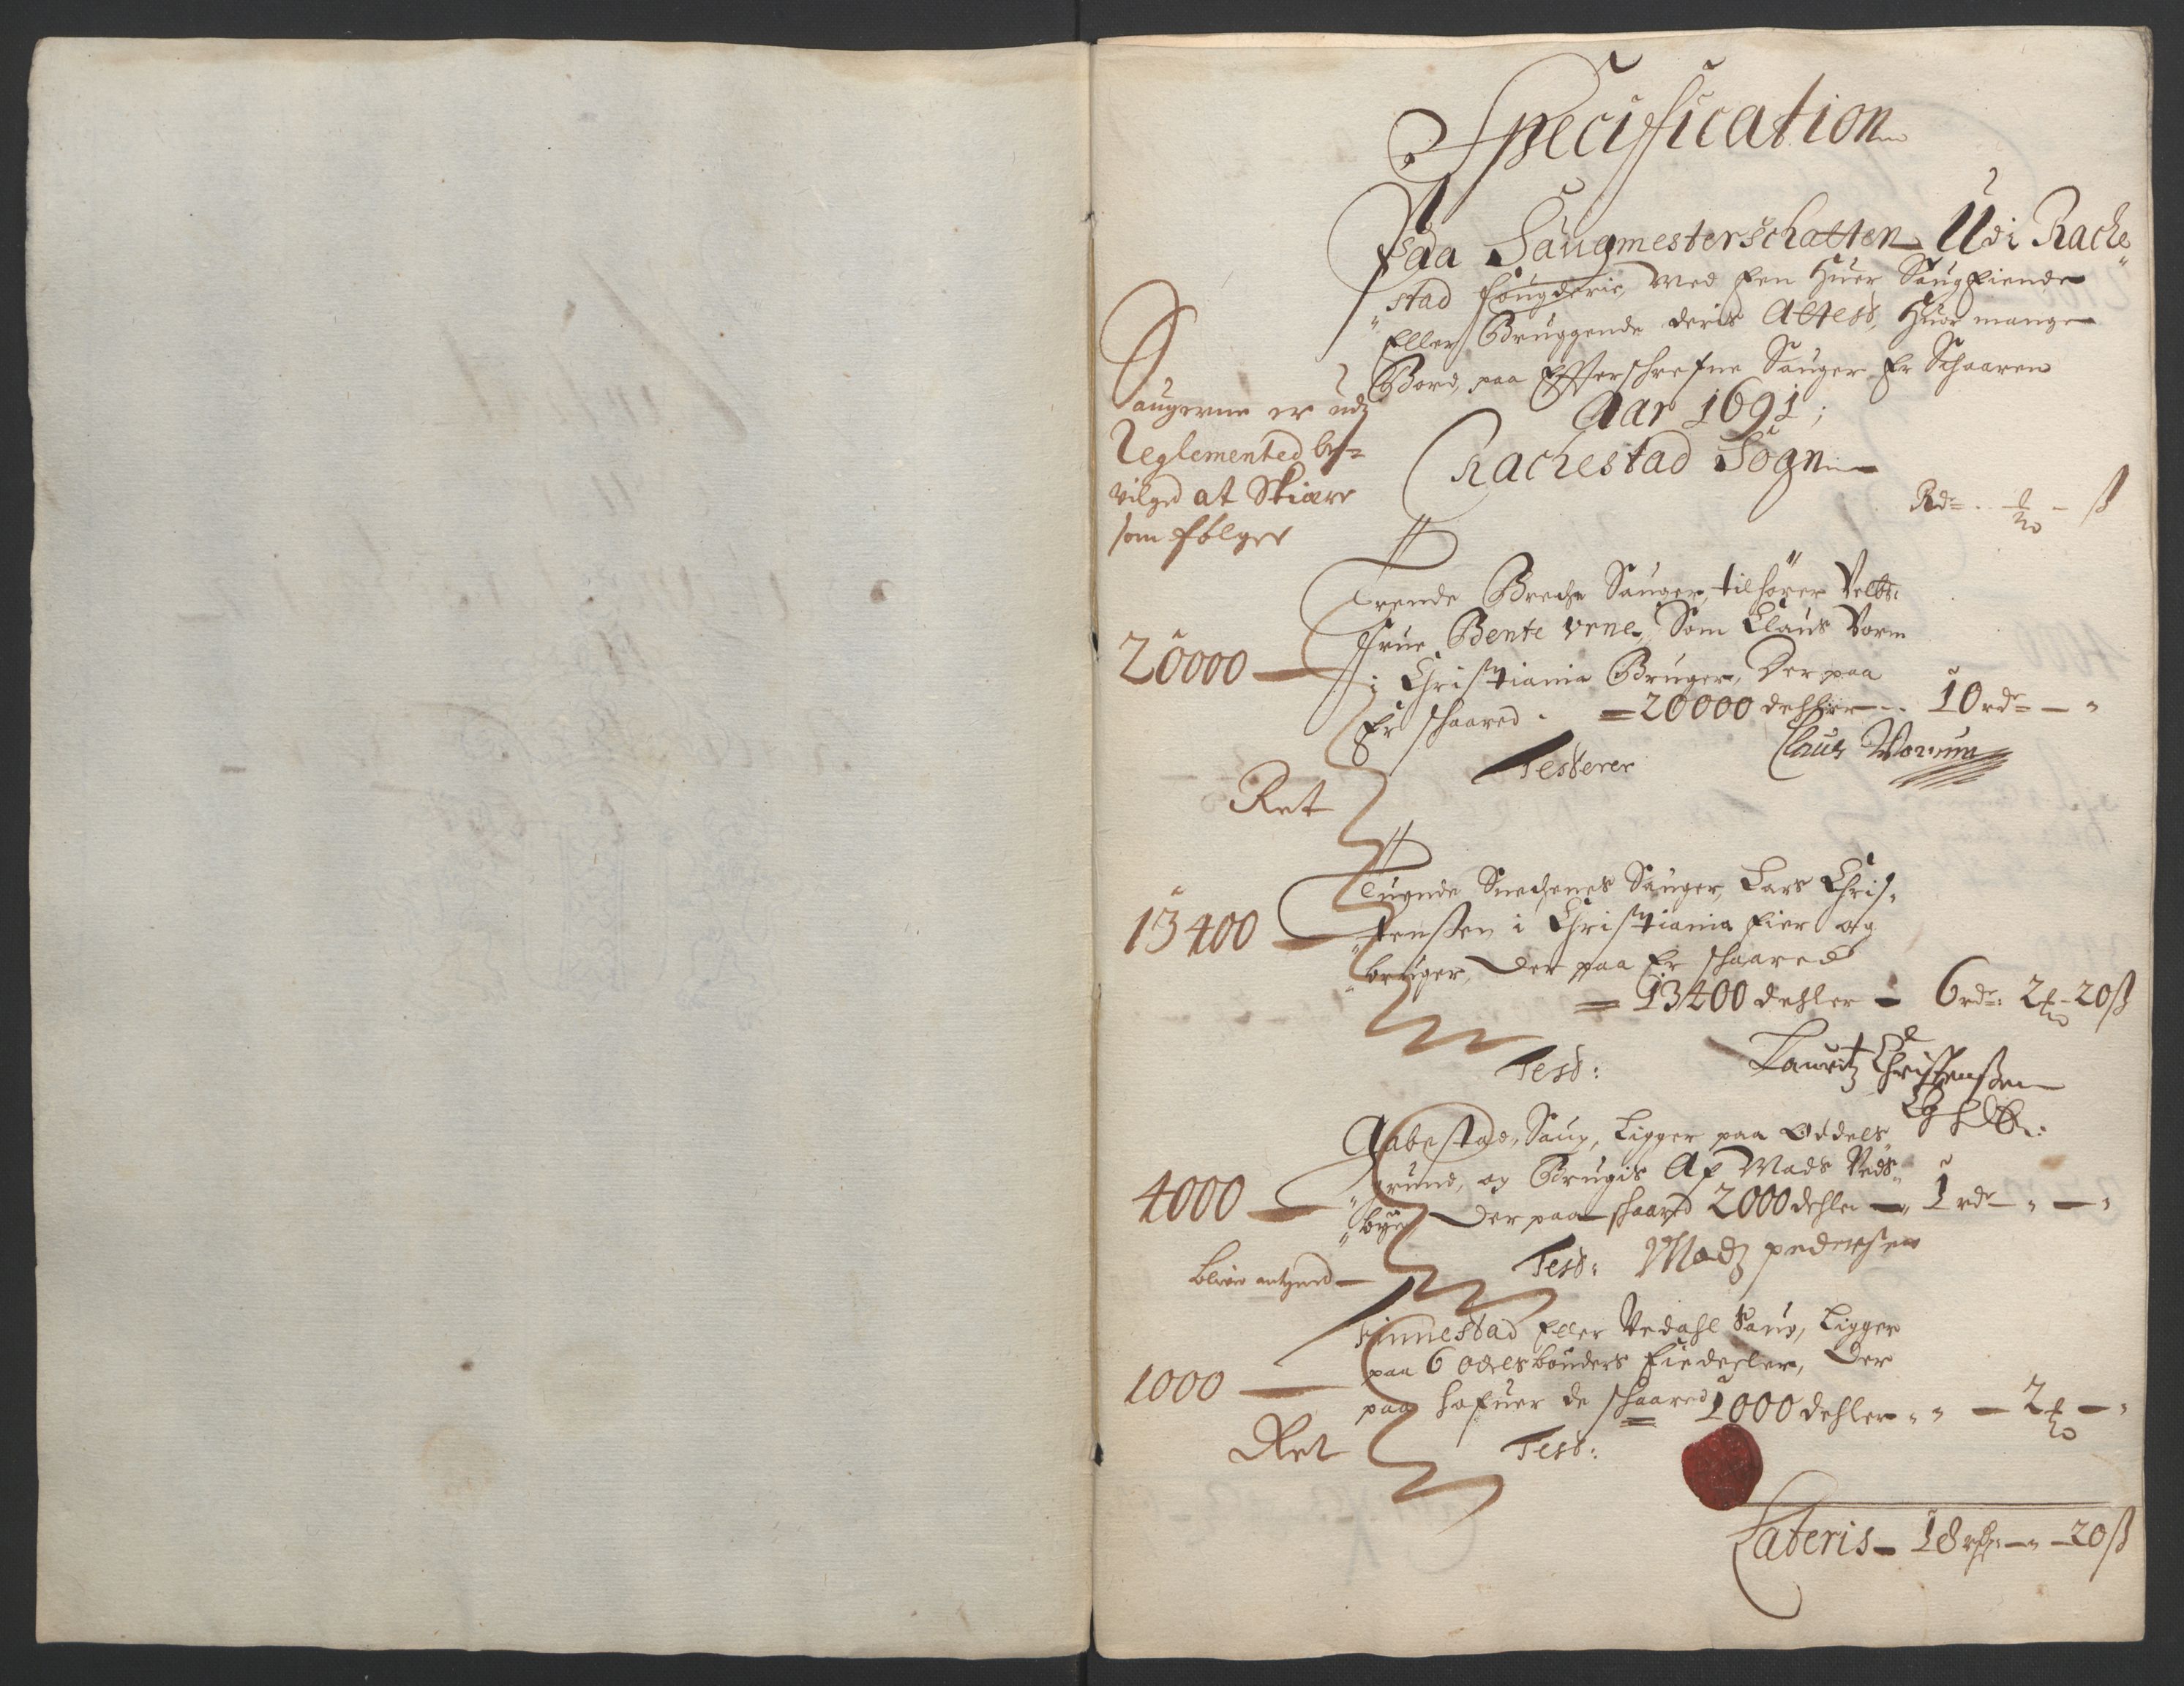 Specification
Paa Saugmesterschatten Udi Rache„
„stad fougderie, Med Een Huer Saug Eiende
Eller Bruggende deris Attest, Huor mange
Bord, paa Efterschrefne Sauger Er Schaaren
Aar 1691;
Rachestad Sogn
Saugerne er udj
Reglemented be=
vilged at Skiære
som følger
Rdr - ort - ß
Trende Brecke Sauger, tilhører Velb:
Frue Bente Vrne, Som Claus Vorm
i Christiania Bruger, Der paa
Er schaared = 20000 dehler - 10 rdr - "
20000
Testerer Claus Worum
Ret
Tuende Snechenes Sauger, Lars Chris„
„tenßen i Christiania Eier og
„bruger, Der paa Er schaared
13400
= 13400 dehler - 6 rdr: 2 ort - 20 ß
Test: Lauritz Christenßen
Aabestad, Saug, Ligger paa Oddels„
„grund, og Brugis Af Mads Veds„
„bye Der paa schaared 2000 dehler - 1 rdr " - "
4000
Test: Madz pedersen
Blive antegned
Finnestad Eller Vedahl Saug, Ligger
paa 6 odelsbønders Eiedehler, Der
paa hafuer de schaared 1000 dehler " " - 2 ort - "
1000
Ret
Test:
Lateris - 18 rdr - " - 20 ß